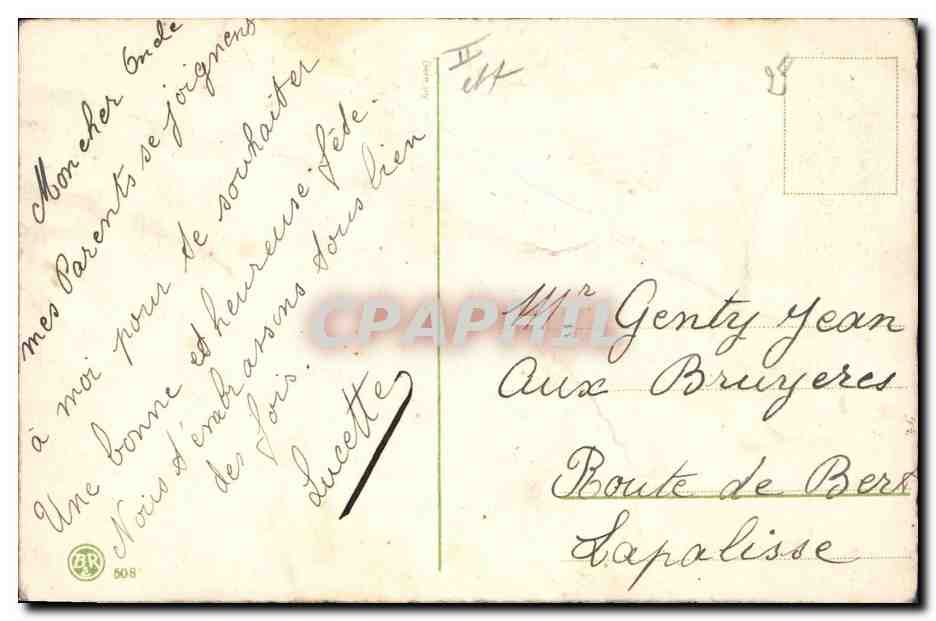 Mon cher Oncle
mes Parents se joignens
à moi pour te souhaiter
Une bonne et heureuse fête.
Nous t'embrassons tous bien
des fois.
Lucette
II
CPAPHIL
Mr Genty Jean
Aux Bruyeres
Route de Bert
Lapalisse
BR
508